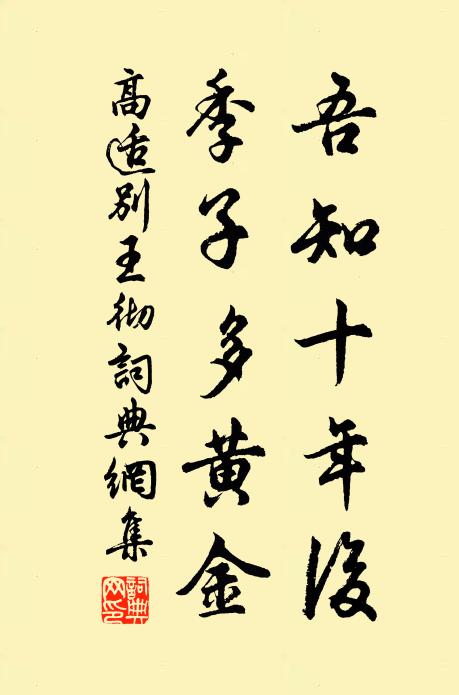 吾知十年後
季子多黄金
高适別王彻詞典網集
詞典网印